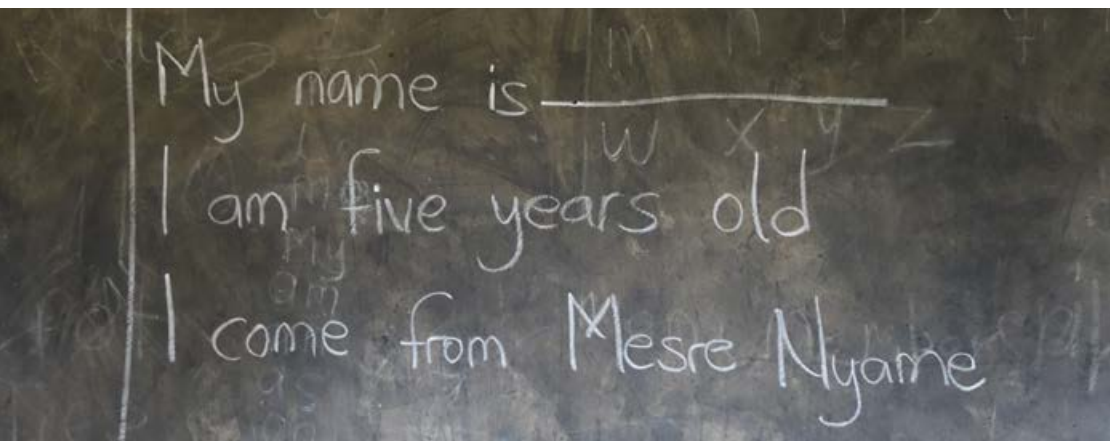 m n
My name is
w x y z
I am five years old
My
am
I come from Mesre Nyame